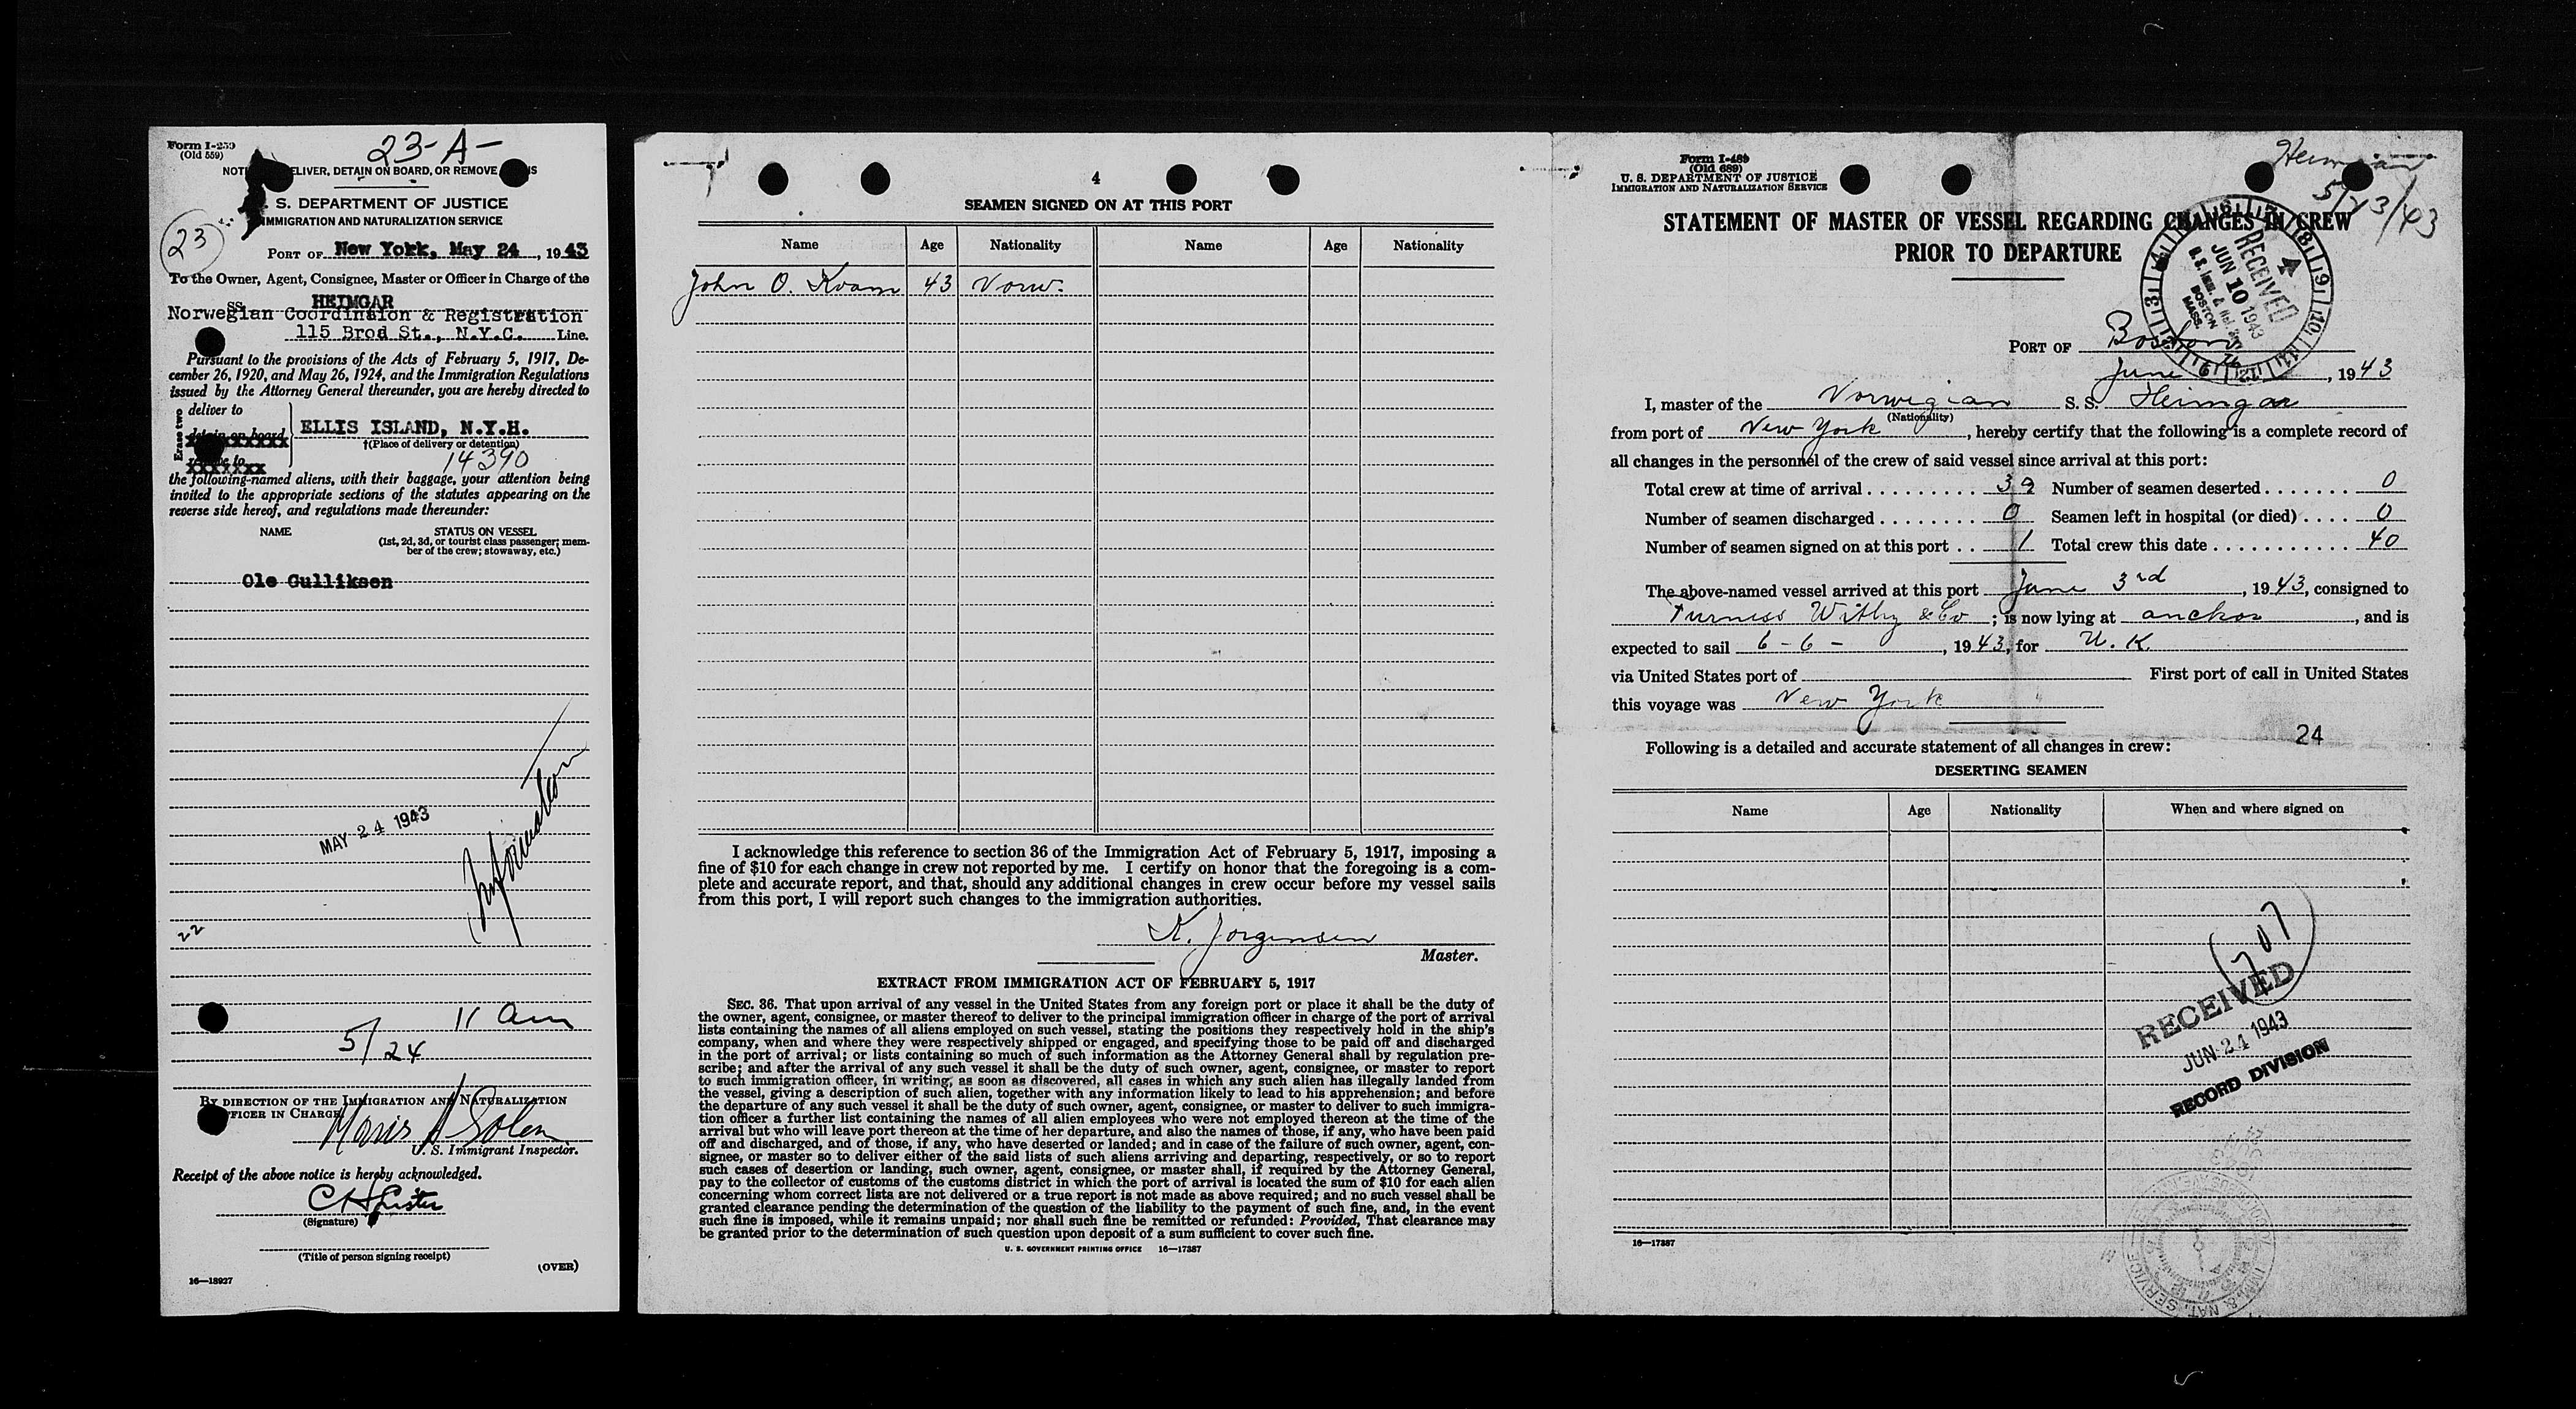 Form I-259
(Old 559)
23-A-
ELIVER, DETAIN ON BOARD, OR REMOVE
S. DEPARTMENT OF JUSTICE
IMMIGRATION AND NATURALIZATION SERVICE
23
PORT OF New York, May 24, 1943
To the Owner, Agent, Consignee, Master or Officer in Charge of the
SS. HEIMGAR
Norwegian Coordination & Registration
115 Brod St., N.Y.C. Line.
Pursuant to the provisions of the Acts of February 5, 1917, De-
cember 26, 1920, and May 26, 1924, and the Immigration Regulations
issued by the Attorney General thereunder, you are hereby directed to
Erase two
deliver to
detain on board
ELLIS ISLAND, N.Y.H.
†(Place of delivery or detention)
14390
the following-named aliens, with their baggage, your attention being
invited to the appropriate sections of the statutes appearing on the
reverse side hereof, and regulations made thereunder:
NAME STATUS ON VESSEL
(1st, 2d, 3d, or tourist class passenger; mem-
ber of the crew; stowaway, etc.)
Ole Gulliksen
MAY 24 1943
22
11 am
5/24
BY DIRECTION OF THE IMMIGRATION AND NATURALIZATION
FFICER IN CHARGE
U. S. Immigrant Inspector.
Receipt of the above notice is hereby acknowledged.
(Signature)
(Title of person signing receipt)
(OVER)
16—18927
4
SEAMEN SIGNED ON AT THIS PORT
Name Age Nationality Name Age Nationality
John O. Kvam 43 Norw.
I acknowledge this reference to section 36 of the Immigration Act of February 5, 1917, imposing a
fine of $10 for each change in crew not reported by me. I certify on honor that the foregoing is a com-
plete and accurate report, and that, should any additional changes in crew occur before my vessel sails
from this port, I will report such changes to the immigration authorities.
K. Jorgensen
Master.
EXTRACT FROM IMMIGRATION ACT OF FEBRUARY 5, 1917
SEC. 36. That upon arrival of any vessel in the United States from any foreign port or place it shall be the duty of
the owner, agent, consignee, or master thereof to deliver to the principal immigration officer in charge of the port of arrival
lists containing the names of all aliens employed on such vessel, stating the positions they respectively hold in the ship's
company, when and where they were respectively shipped or engaged, and specifying those to be paid off and discharged
in the port of arrival; or lists containing so much of such information as the Attorney General shall by regulation pre-
scribe; and after the arrival of any such vessel it shall be the duty of such owner, agent, consignee, or master to report
to such immigration officer, in writing, as soon as discovered, all cases in which any such alien has illegally landed from
the vessel, giving a description of such alien, together with any information likely to lead to his apprehension; and before
the departure of any such vessel it shall be the duty of such owner, agent, consignee, or master to deliver to such immigra-
tion officer a further list containing the names of all alien employees who were not employed thereon at the time of the
arrival but who will leave port thereon at the time of her departure, and also the names of those, if any, who have been paid
off and discharged, and of those, if any, who have deserted or landed; and in case of the failure of such owner, agent, con-
signee, or master so to deliver either of the said lists of such aliens arriving and departing, respectively, or so to report
such cases of desertion or landing, such owner, agent, consignee, or master shall, if required by the Attorney General,
pay to the collector of customs of the customs district in which the port of arrival is located the sum of $10 for each alien
concerning whom correct lists are not delivered or a true report is not made as above required; and no such vessel shall be
granted clearance pending the determination of the question of the liability to the payment of such fine, and, in the event
such fine is imposed, while it remains unpaid; nor shall such fine be remitted or refunded: Provided, That clearance may
be granted prior to the determination of such question upon deposit of a sum sufficient to cover such fine.
U. S. GOVERNMENT PRINTING OFFICE 16—17387
Form I-489
(Old 689)
U. S. DEPARTMENT OF JUSTICE
IMMIGRATION AND NATURALIZATION SERVICE
5/23/43
STATEMENT OF MASTER OF VESSEL REGARDING CHANGES IN CREW
PRIOR TO DEPARTURE
RECEIVED
JUN 10 1943
BOSTON
MASS.
PORT OF Boston
June, 1943
I, master of the Norwegian S. S. Heimgar
(Nationality)
from port of New York, hereby certify that the following is a complete record of
all changes in the personnel of the crew of said vessel since arrival at this port:
Total crew at time of arrival 39 Number of seamen deserted 0
Number of seamen discharged 0 Seamen left in hospital (or died) 0
Number of seamen signed on at this port 1 Total crew this date 40
The above-named vessel arrived at this port June 3rd, 1943, consigned to
Furness Withy & Co; is now lying at anchor, and is
expected to sail 6-6-, 1943, for U. K.
via United States port of First port of call in United States
this voyage was New York
24
Following is a detailed and accurate statement of all changes in crew:
DESERTING SEAMEN
Name Age Nationality When and where signed on
707
RECEIVED
JUN 24 1943
RECORD DIVISION
16—17387